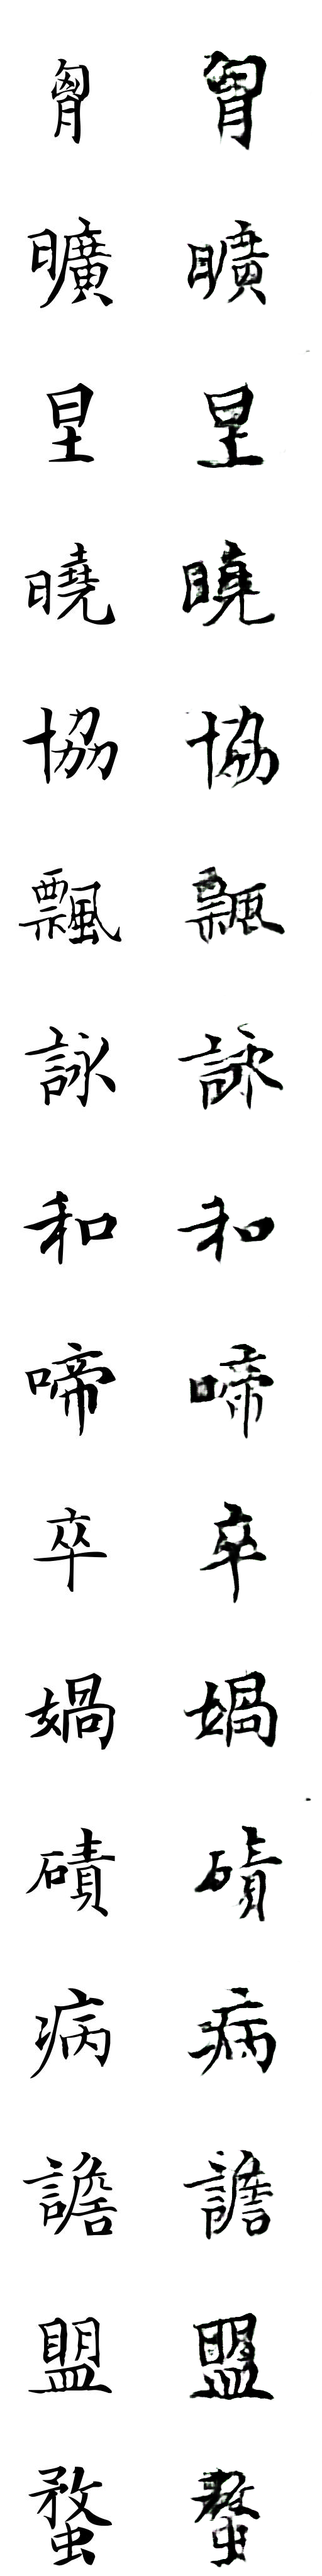 胷 胷
曠 曠
𡉄 𡉄
曉 曉
協 協
飄 飄
詠 詠
和 和
啼 啼
卒 卒
媧 媧
磧 磧
病 病
譫 譫
盟 盟
蝥 蝥